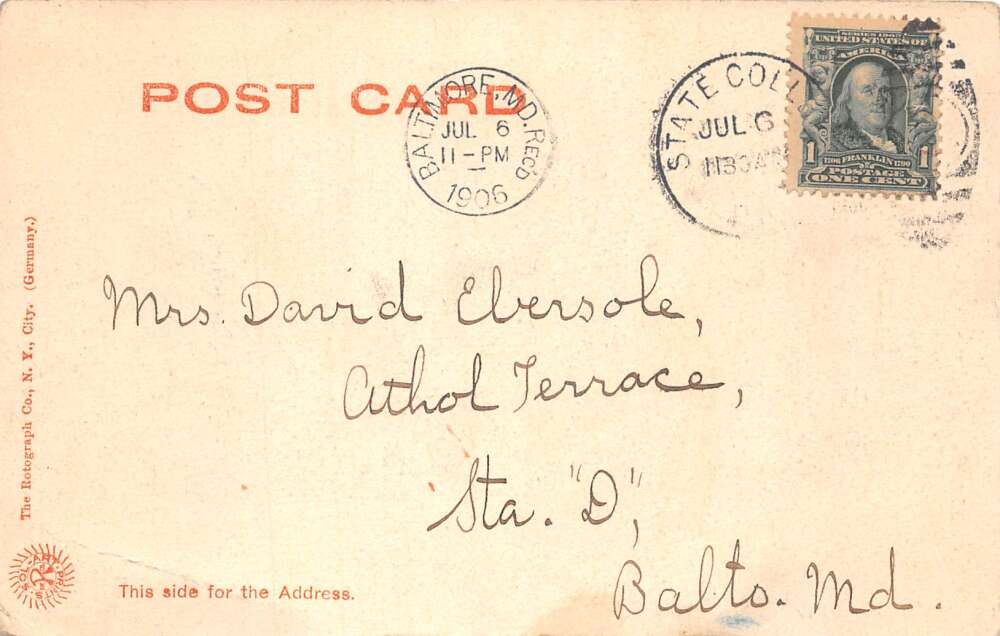 POST CARD
BALTIMORE, MD. REC'D
JUL 6
11-PM
1906
STATE COLL
JUL 6
1130A
SERIES 1902
UNITED STATES OF
AMERICA
1 1706 FRANKLIN 1790 1
POSTAGE
ONE CENT
Mrs. David Ebersole,
Athol Terrace,
Sta. "D",
Balto. Md.
The Rotograph Co., N. Y., City. (Germany.)
SOL-ART PRINTS
R
This side for the Address.